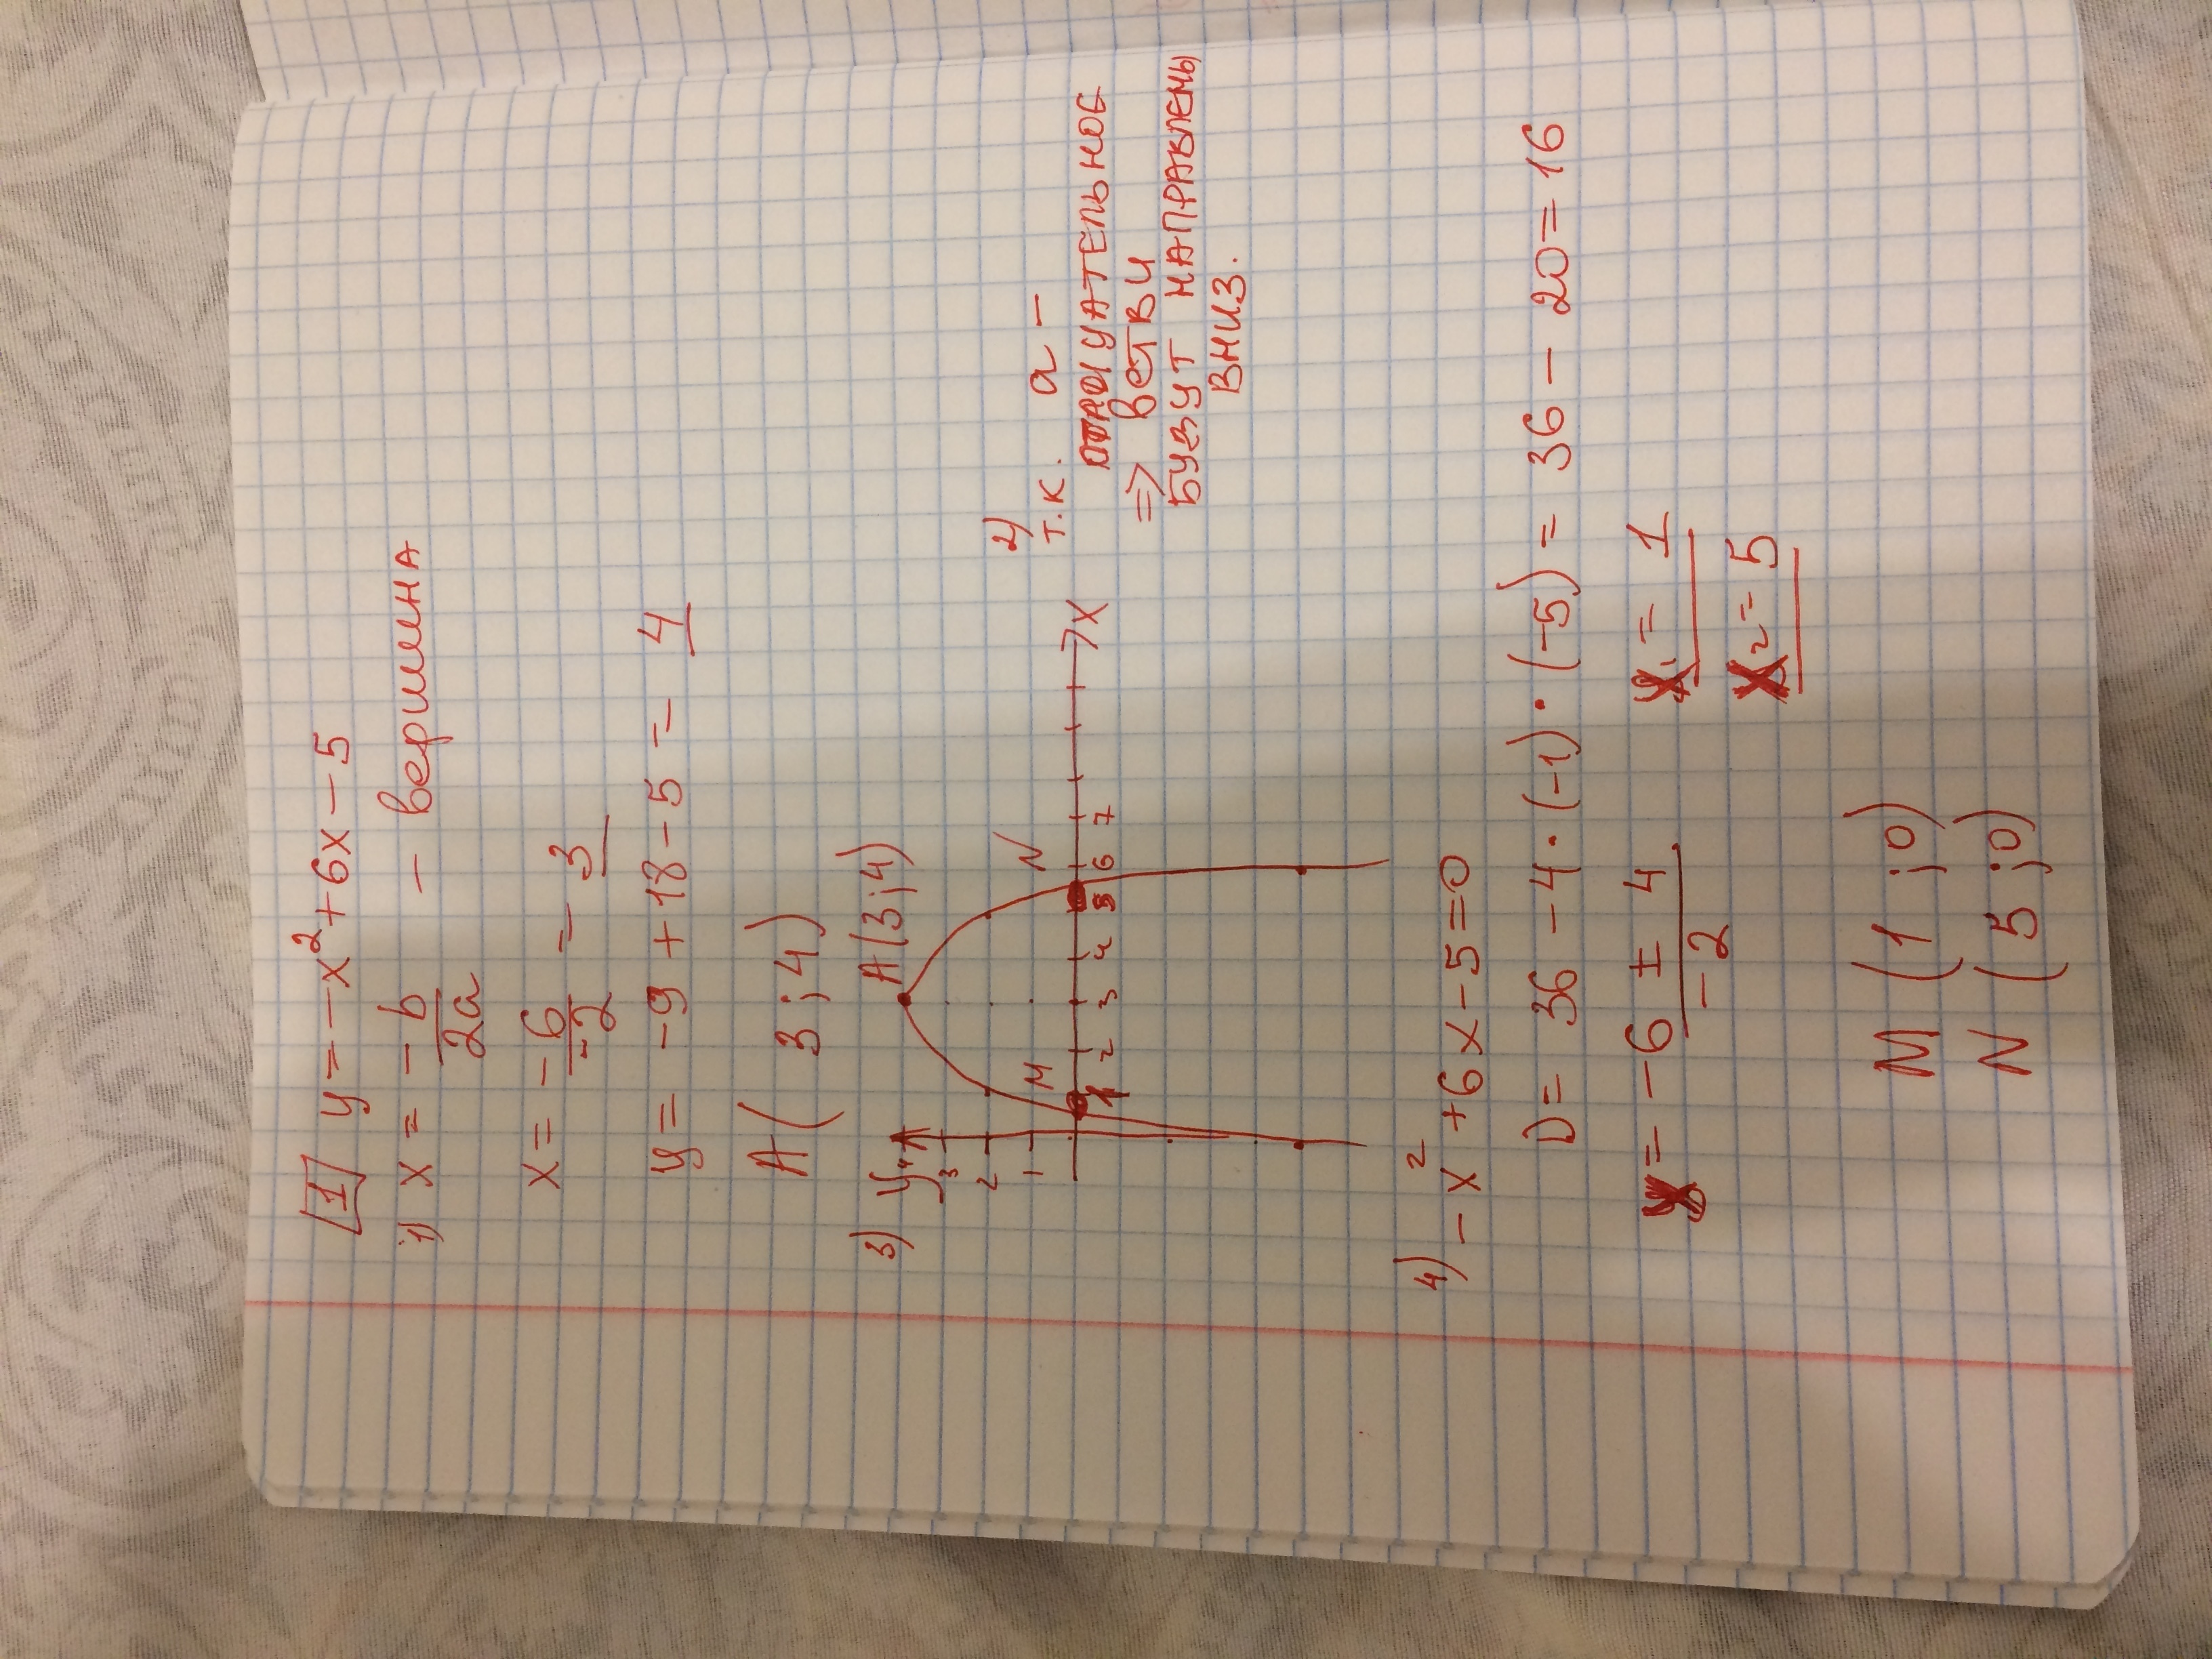 1 y = -x² + 6x - 5
1) x = -b/2a - вершина
x = -6/-2 = 3
y = -9 + 18 - 5 = 4
A ( 3 ; 4 )
2) т.к. a -
отрицательное
=> ветви
будут направлены
вниз.
3) y A (3 ; 4)
4
3
2
1
M N
1 2 3 4 5 6 7 x
4) -x² + 6x - 5 = 0
D = 36 - 4 · (-1) · (-5) = 36 - 20 = 16
x = -6 ± 4 / -2 x₁ = 1
x₂ = 5
M ( 1 ; 0 )
N ( 5 ; 0 )